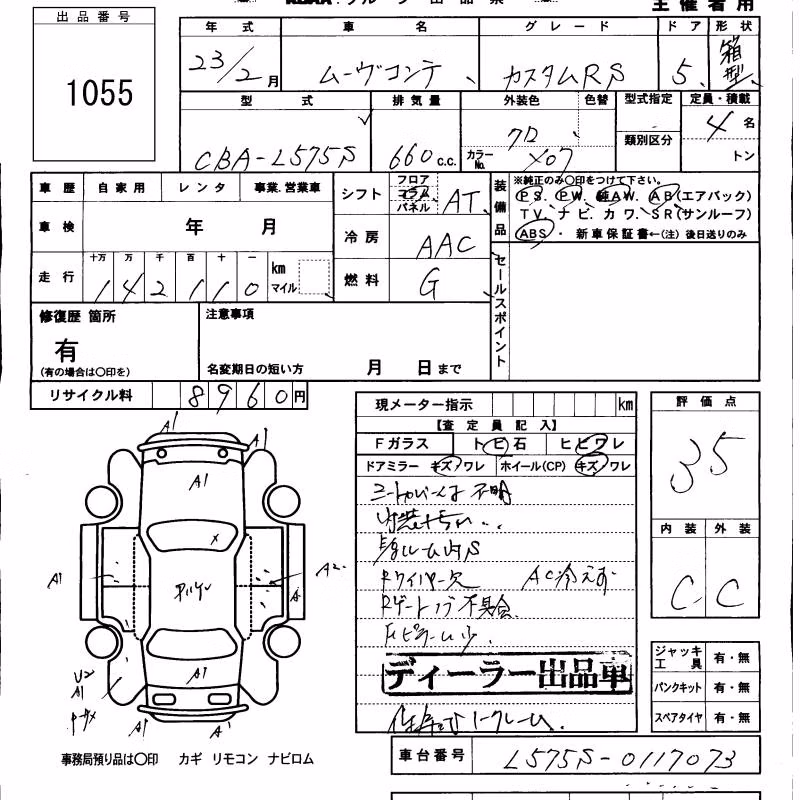 主催者用
出品番号
1055
年式 車名 グレード ドア 形状
23/2月 ムーヴコンテ カスタムRS 5 箱型
型式 排気量 外装色 色替 型式指定 定員・積載
類別区分
CBA-L575S 660c.c. クロ カラーNo. X07 4名
トン
車歴 自家用 レンタ 事業.営業車
車検 年 月
走行 十万 万 千 百 十 一
142110 km マイル
シフト フロア コラム パネル AT
冷房 AAC
燃料 G
装備品 ※純正のみ〇印をつけて下さい。
PS. PW. 純AW. AB(エアバック)
TV. ナビ. カワ. SR(サンルーフ)
ABS ・ 新車保証書←(注) 後日送りのみ
セールスポイント
修復歴 箇所
有
(有の場合は〇印を)
注意事項
名変期日の短い方 月 日まで
リサイクル料 8960円
現メーター指示 km
【査定員記入】
Fガラス トビ石 ヒビワレ
ドアミラー キズ/ワレ ホイール(CP) キズ/ワレ
不明
Rワイパー欠 AC冷えず
Rゲート 不具合
ディーラー出品車
評価点
35
内装 外装
C C
ジャッキ工具 有・無
パンクキット 有・無
スペアタイヤ 有・無
A1 A1
A1
X
A1 A2
A
A1
A1
A1 A1
事務局預り品は〇印 カギ リモコン ナビロム
車台番号 L575S-0117073